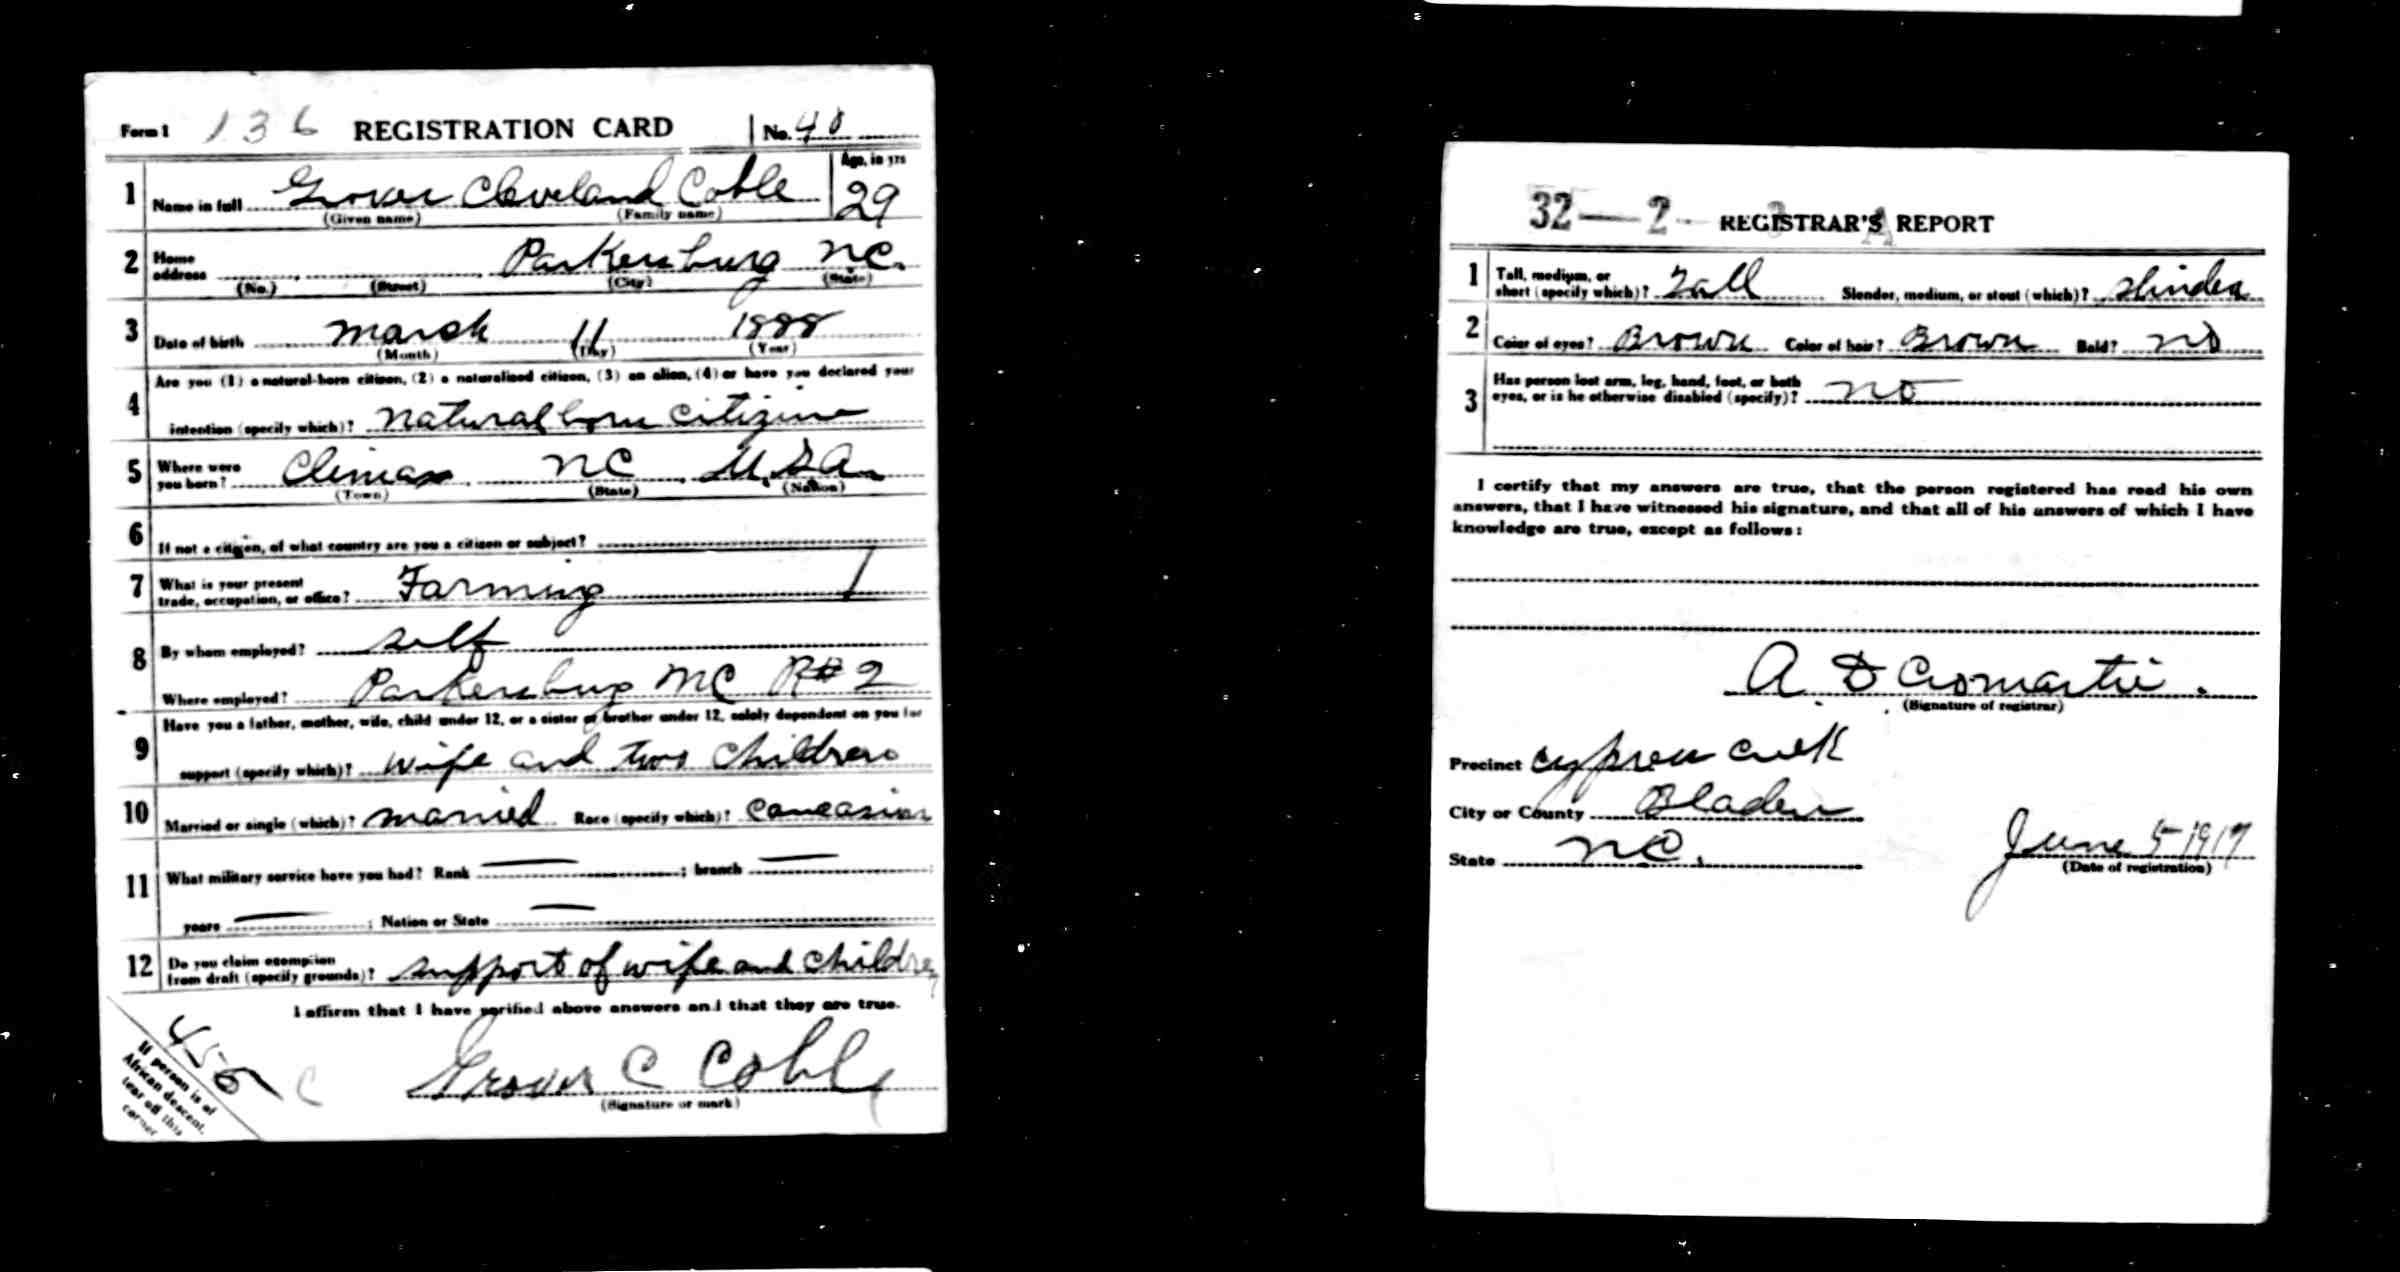 Form 1 136 REGISTRATION CARD No. 48
1 Name in full Grover Cleveland Coble Age, in yrs 29
(Given name) (Family name)
2 Home address Parkersburg NC.
(No.) (Street) (City) (State)
3 Date of birth March 11 1888
(Month) (Day) (Year)
4 Are you (1) a natural-born citizen, (2) a naturalized citizen, (3) an alien, (4) or have you declared your
intention (specify which)? Natural born Citizen
5 Where were you born? Climax NC U.S.A.
(Town) (State) (Nation)
6 If not a citizen, of what country are you a citizen or subject?
7 What is your present trade, occupation, or office? Farming 1
8 By whom employed? self
Where employed? Parkersburg NC R#2
9 Have you a father, mother, wife, child under 12, or a sister or brother under 12, solely dependent on you for
support (specify which)? wife and two Children
10 Married or single (which)? married Race (specify which)? Caucasian
11 What military service have you had? Rank ; branch
years ; Nation or State
12 Do you claim exemption from draft (specify grounds)? support of wife and children
I affirm that I have verified above answers and that they are true.
Grover C Coble
(Signature or mark)
If person is of
African descent,
tear off this
corner
C
32—2— 3 A REGISTRAR'S REPORT
1 Tall, medium, or short (specify which)? Tall Slender, medium, or stout (which)? Slinder
2 Color of eyes? Brown Color of hair? Brown Bald? no
3 Has person lost arm, leg, hand, foot, or both eyes, or is he otherwise disabled (specify)? no
I certify that my answers are true, that the person registered has read his own
answers, that I have witnessed his signature, and that all of his answers of which I have
knowledge are true, except as follows:
A D Cromartie.
(Signature of registrar)
Precinct Cypress Creek
City or County Bladen
State NC.
June 5-1917
(Date of registration)